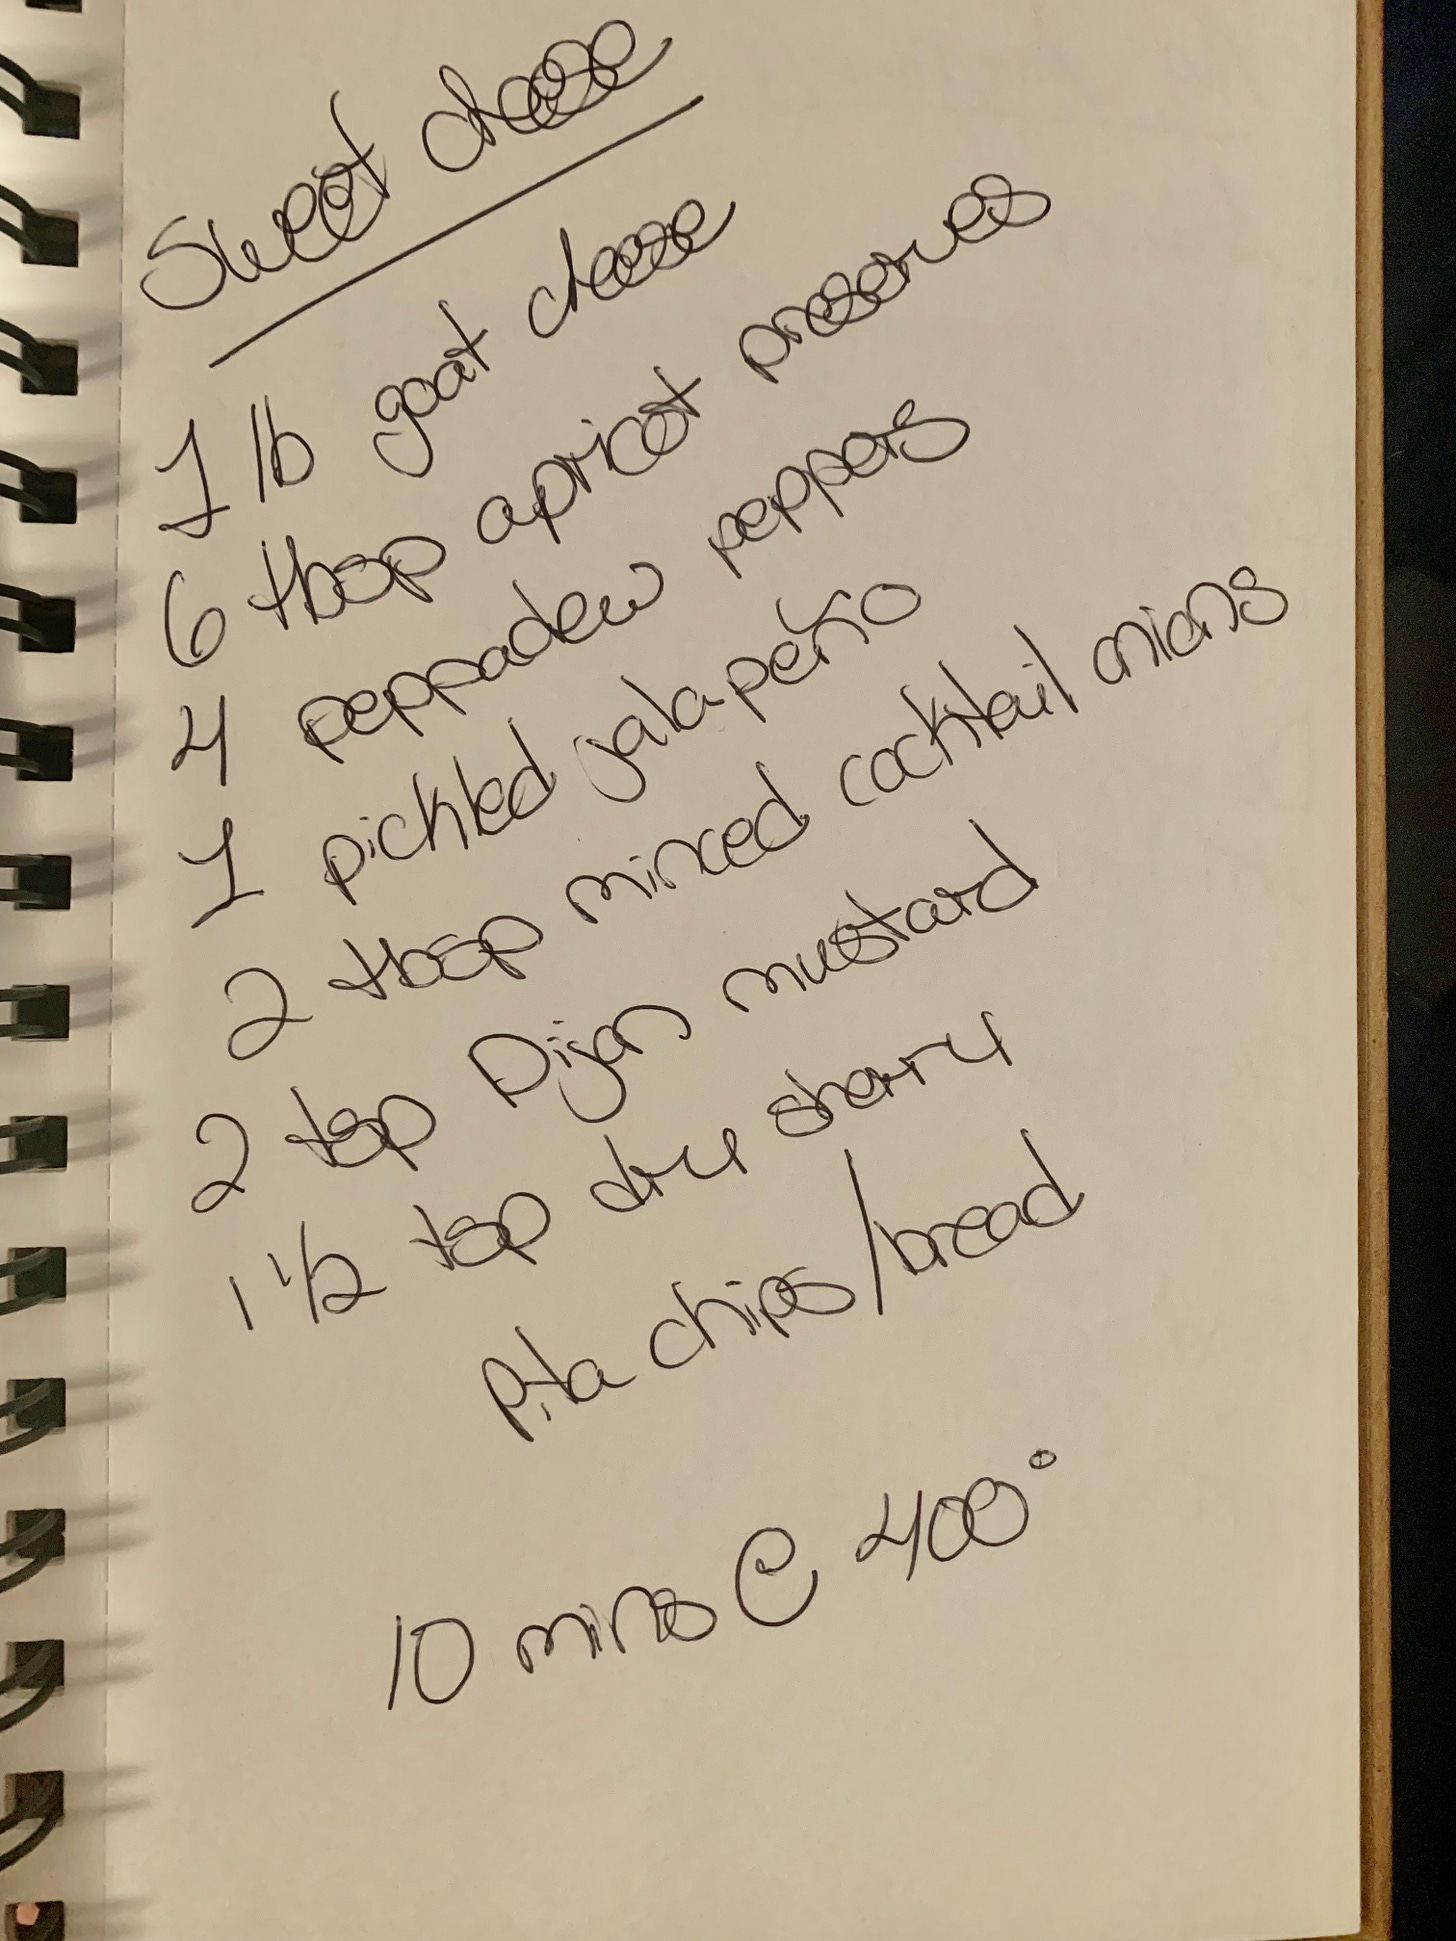 Sweet cheese
1 lb goat cheese
6 tbsp apricot preserves
4 peppadew peppers
1 pickled jalapeño
2 tbsp minced cocktail onions
2 tsp Dijon mustard
1 1/2 tsp dry sherry
Pita chips/bread
10 mins @ 400°